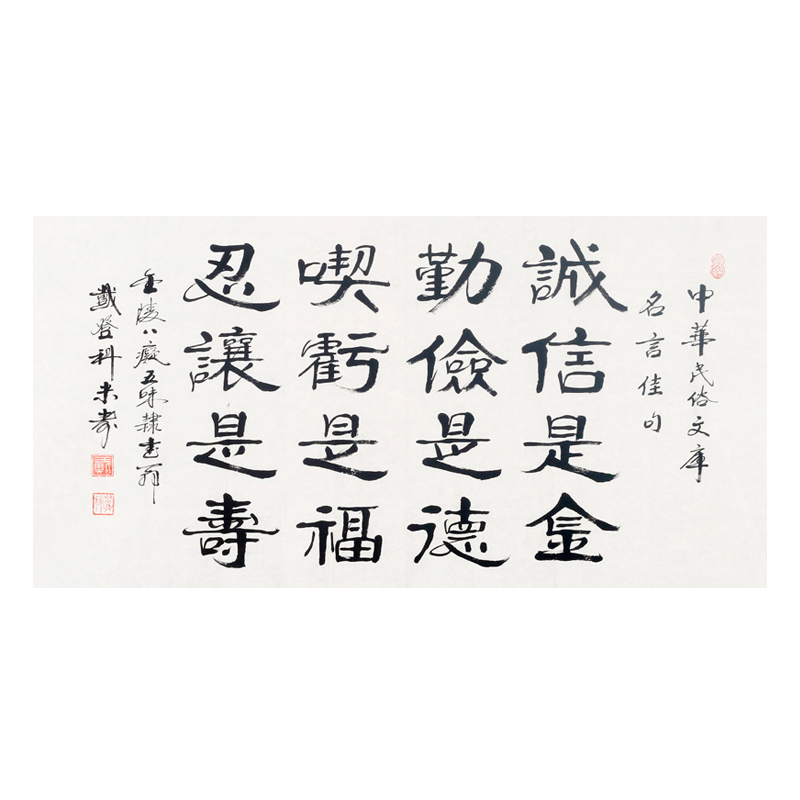 中華民俗文庫
名言佳句
誠信是金
勤儉是德
喫虧是福
忍讓是壽
陵八癡五味隸書
戴登科